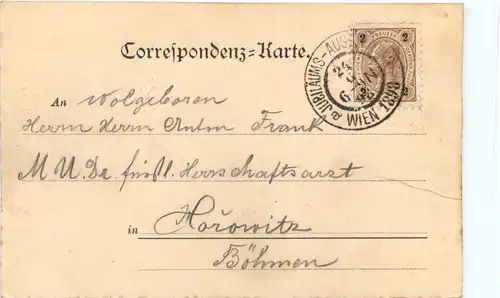 Correspondenz-Karte.
JUBILÄUMS-AUS
24
6
98
WIEN 1898
a
2 2
2 2
An Wolgeboren
Herrn Herrn Anton Frank
M U Dr fürstl. Herrschaftsarzt
in Hořowitz
Böhmen